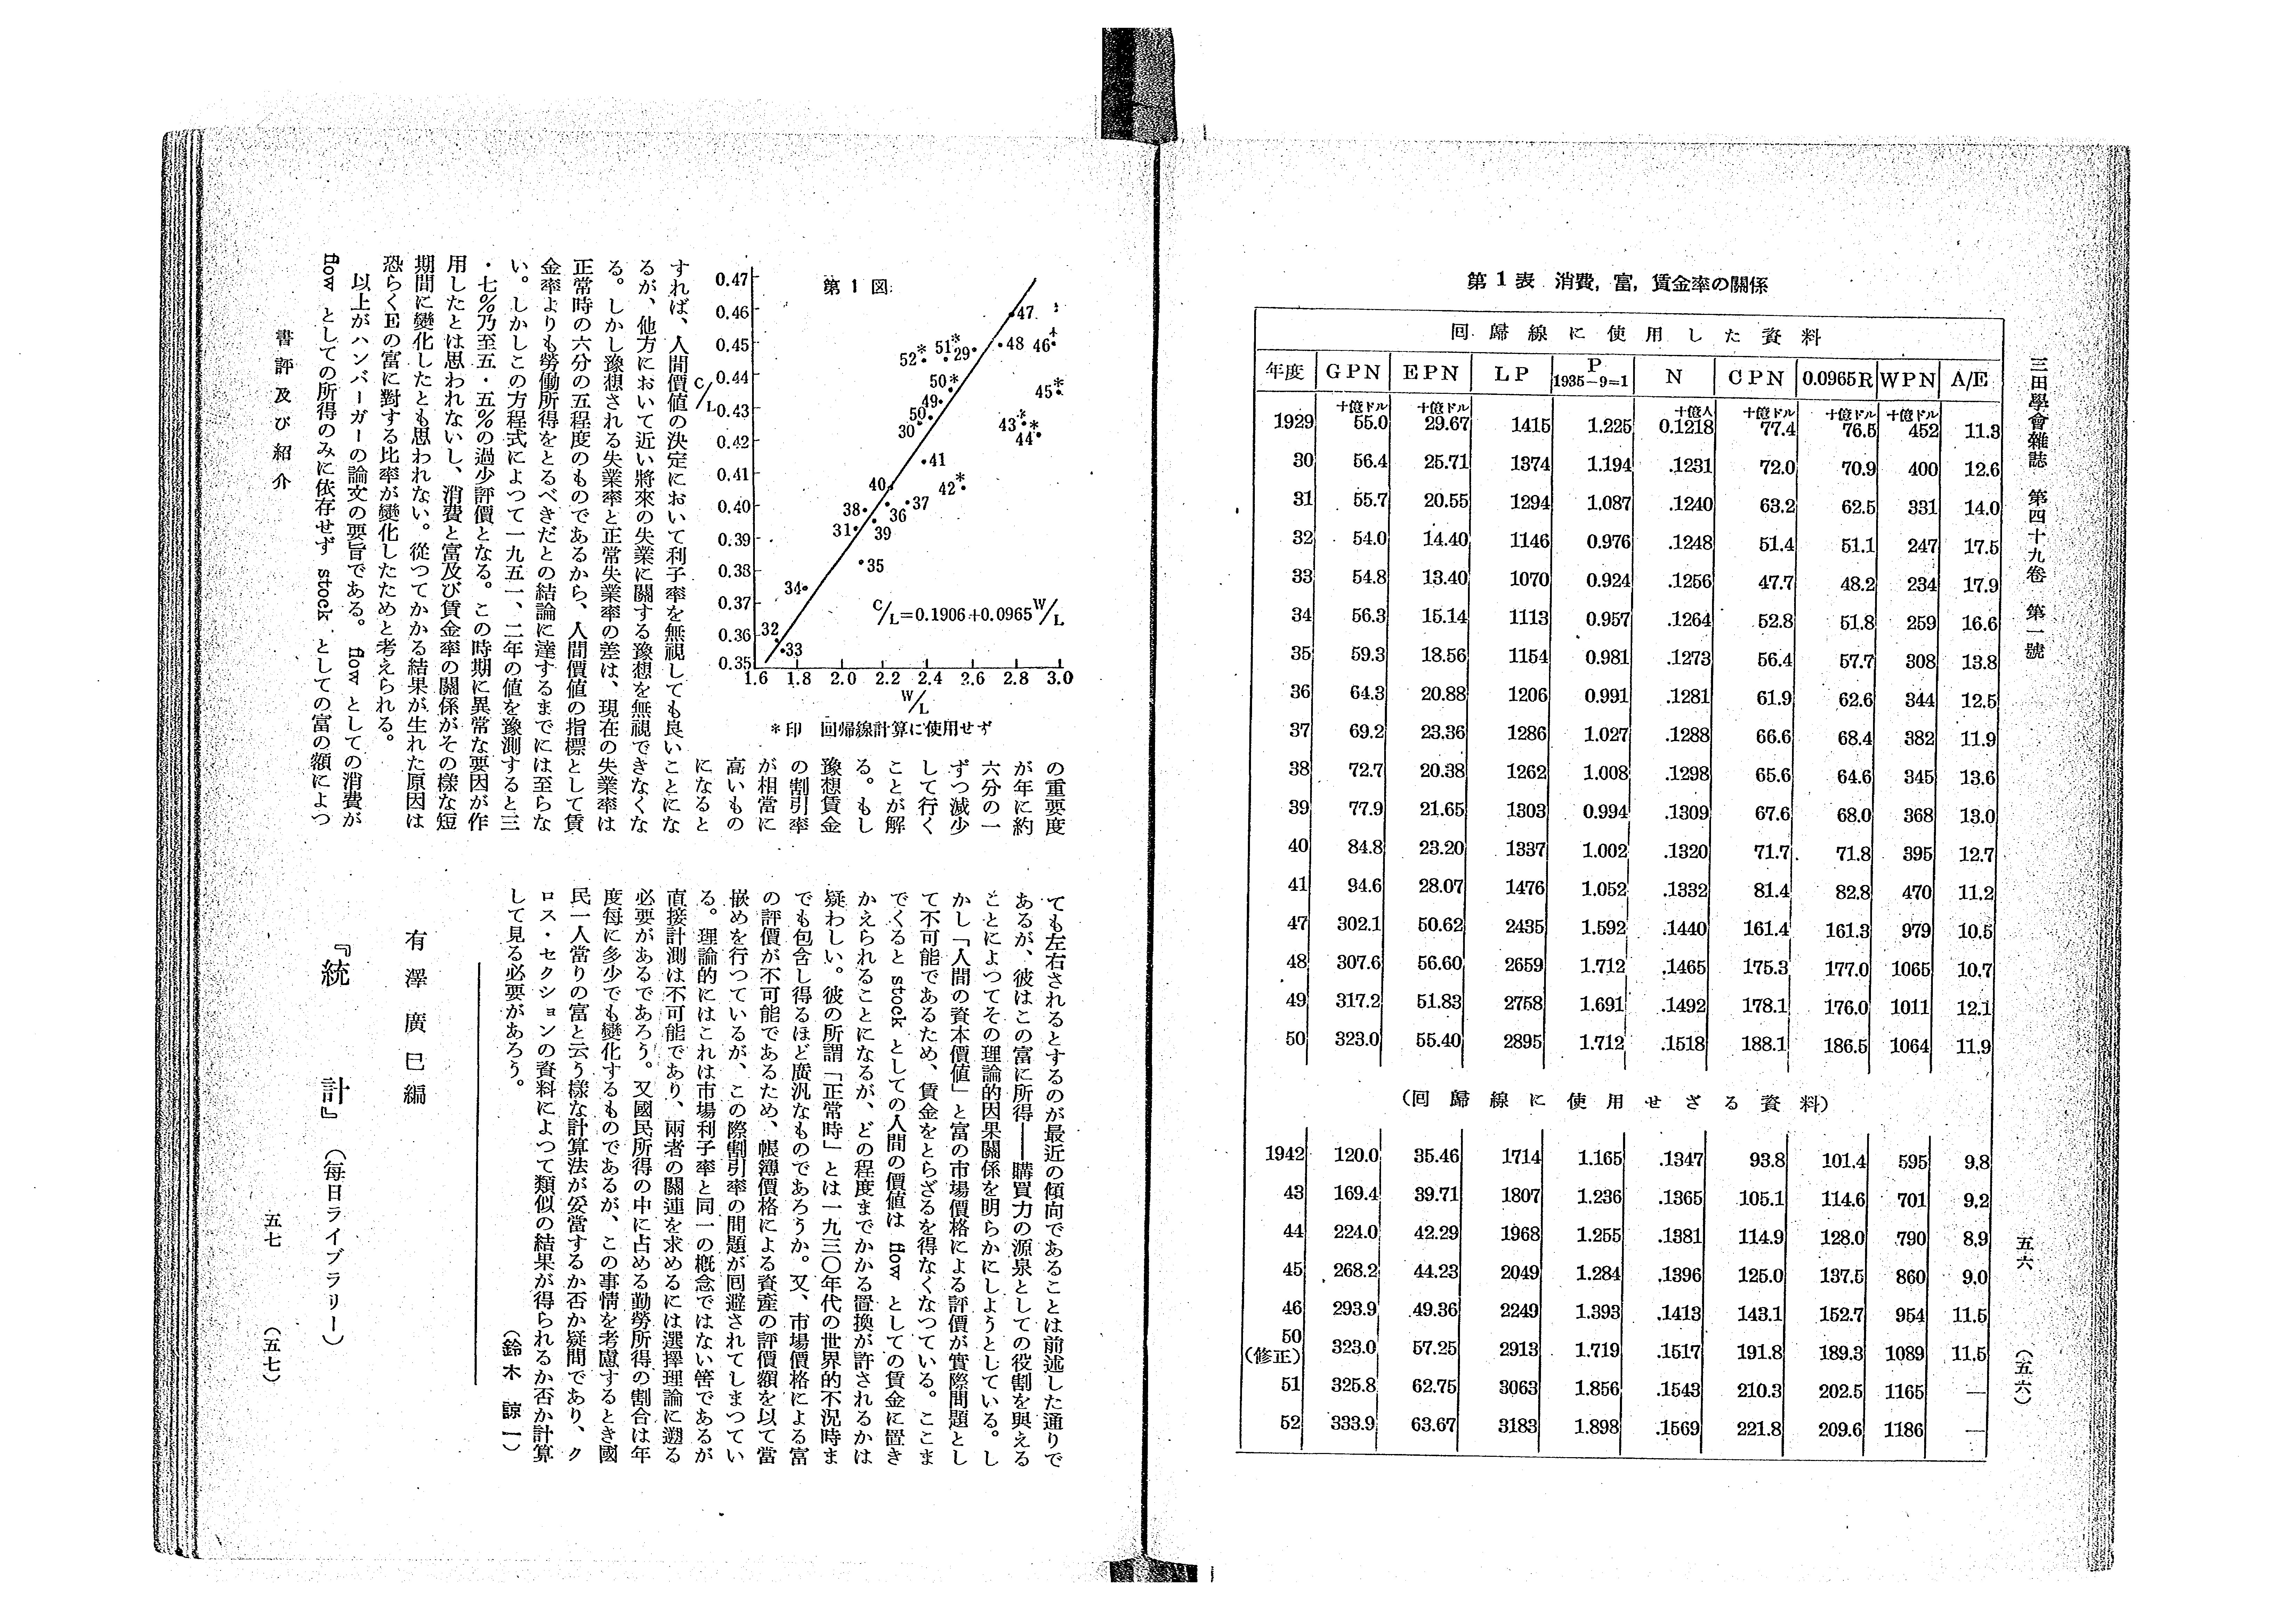 三田學會雜誌 第四十九卷 第一號
五六 (五六)
第1表 消費, 富, 賃金率の關係
回歸線に使用した資料
年度 GPN EPN LP P 1935-9=1 N CPN 0.0965R WPN A/E
十億ドル 十億ドル 十億人 十億ドル 十億ドル 十億ドル
1929 55.0 29.67 1415 1.225 0.1218 77.4 76.5 452 11.3
30 56.4 25.71 1374 1.194 .1231 72.0 70.9 400 12.6
31 55.7 20.55 1294 1.087 .1240 63.2 62.5 331 14.0
32 54.0 14.40 1146 0.976 .1248 51.4 51.1 247 17.5
33 54.8 13.40 1070 0.924 .1256 47.7 48.2 234 17.9
34 56.3 15.14 1113 0.957 .1264 52.8 51.8 259 16.6
35 59.3 18.56 1154 0.981 .1273 56.4 57.7 308 13.8
36 64.3 20.88 1206 0.991 .1281 61.9 62.6 344 12.5
37 69.2 23.36 1286 1.027 .1288 66.6 68.4 382 11.9
38 72.7 20.38 1262 1.008 .1298 65.6 64.6 345 13.6
39 77.9 21.65 1303 0.994 .1309 67.6 68.0 368 13.0
40 84.8 23.20 1337 1.002 .1320 71.7 71.8 395 12.7
41 94.6 28.07 1476 1.052 .1332 81.4 82.8 470 11.2
47 302.1 50.62 2435 1.592 .1440 161.4 161.3 979 10.5
48 307.6 56.60 2659 1.712 .1465 175.3 177.0 1065 10.7
49 317.2 51.83 2758 1.691 .1492 178.1 176.0 1011 12.1
50 323.0 55.40 2895 1.712 .1518 188.1 186.5 1064 11.9
(回歸線に使用せざる資料)
1942 120.0 35.46 1714 1.165 .1347 93.8 101.4 595 9.8
43 169.4 39.71 1807 1.236 .1365 105.1 114.6 701 9.2
44 224.0 42.29 1968 1.255 .1381 114.9 128.0 790 8.9
45 268.2 44.23 2049 1.284 .1396 125.0 137.5 860 9.0
46 293.9 49.36 2249 1.393 .1413 143.1 152.7 954 11.5
50(修正) 323.0 57.25 2913 1.719 .1517 191.8 189.3 1089 11.5
51 325.8 62.75 3063 1.856 .1543 210.3 202.5 1165 —
52 333.9 63.67 3183 1.898 .1569 221.8 209.6 1186 —
第1図
C/L
0.47
0.46
0.45
0.44
0.43
0.42
0.41
0.40
0.39
0.38
0.37
0.36
0.35
47
48 46*
52* 51* 29
50* 45*
49
50 43* 44*
30
41
40 42*
38 36 37
31 39
35
34
32
33
C/L=0.1906+0.0965W/L
1.6 1.8 2.0 2.2 2.4 2.6 2.8 3.0
W/L
*印 回帰線計算に使用せず
の重要度
が年に約
六分の一
ずつ減少
して行く
ことが解
る。もし
豫想賃金
の割引率
が相當に
高いもの
になると
すれば、人間價値の決定において利子率を無視しても良いことにな
るが、他方において近い將來の失業に關する豫想を無視できなくな
る。しかし豫想される失業率と正常失業率の差は、現在の失業率は
正常時の六分の五程度のものであるから、人間價値の指標として賃
金率よりも勞働所得をとるべきだとの結論に達するまでには至らな
い。しかしこの方程式によつて一九五一、二年の値を豫測すると三
・七%乃至五・五%の過少評價となる。この時期に異常な要因が作
用したとは思われないし、消費と富及び賃金率の關係がその樣な短
期間に變化したとも思われない。從つてかかる結果が生れた原因は
恐らくEの富に對する比率が變化したためと考えられる。
以上がハンバーガーの論文の要旨である。flow としての消費が
flow としての所得のみに依存せず stock としての富の額によつ
ても左右されるとするのが最近の傾向であることは前述した通りで
あるが、彼はこの富に所得——購買力の源泉としての役割を與える
ことによつてその理論的因果關係を明らかにしようとしている。し
かし「人間の資本價値」と富の市場價格による評價が實際問題とし
て不可能であるため、賃金をとらざるを得なくなつている。ここま
でくると stock としての人間の價値は flow としての賃金に置き
かえられることになるが、どの程度までかかる置換が許されるかは
疑わしい。彼の所謂「正常時」とは一九三〇年代の世界的不況時ま
でも包含し得るほど廣汎なものであろうか。又、市場價格による富
の評價が不可能であるため、帳簿價格による資産の評價額を以て當
嵌めを行つているが、この際割引率の間題が囘避されてしまつてい
る。理論的にはこれは市場利子率と同一の概念ではない筈であるが
直接計測は不可能であり、兩者の關連を求めるには選擇理論に遡る
必要があるであろう。又國民所得の中に占める勤勞所得の割合は年
度每に多少でも變化するものであるが、この事情を考慮するとき國
民一人當りの富と云う樣な計算法が妥當するか否か疑問であり、ク
ロス・セクションの資料によつて類似の結果が得られるか否か計算
して見る必要があろう。
(鈴木諒一)
有澤廣巳編
『統計』(每日ライブラリー)
書評及び紹介
五七 (五七)